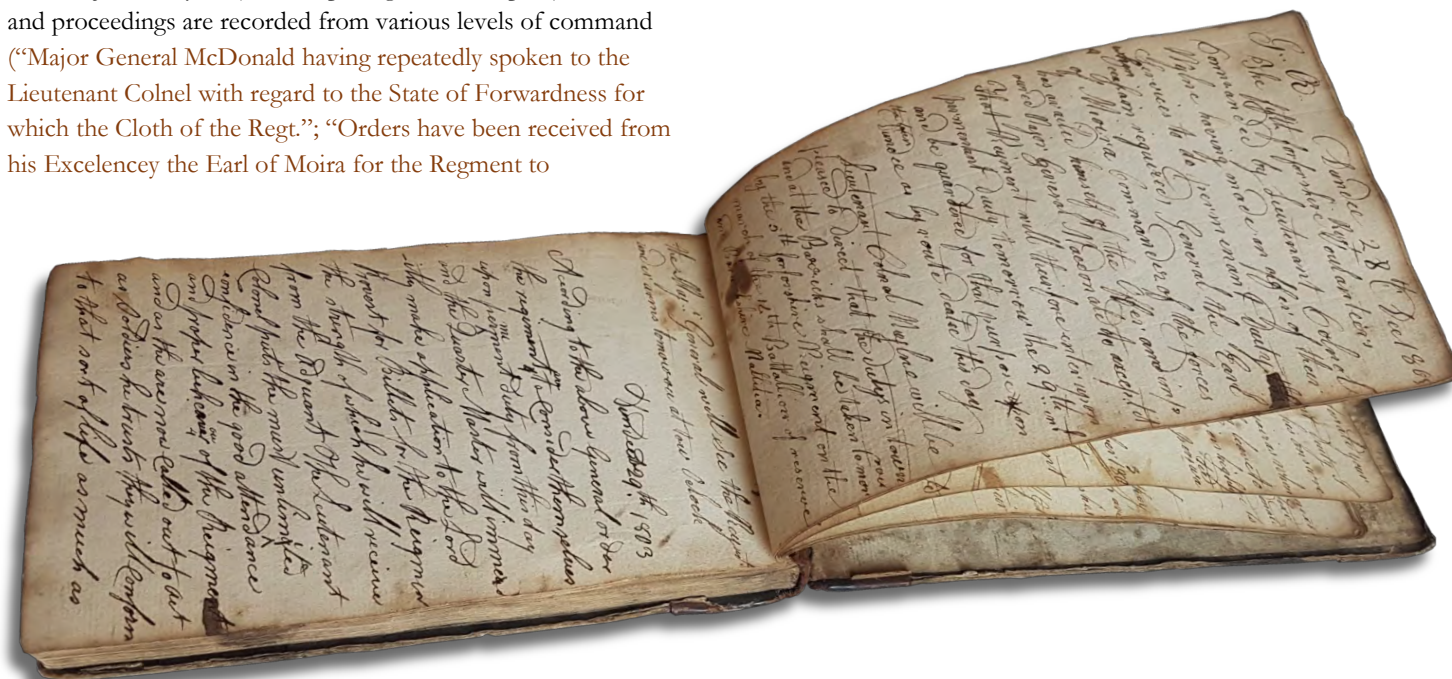 and proceedings are recorded from various levels of command
(“Major General McDonald having repeatedly spoken to the
Lieutenant Colnel with regard to the State of Forwardness for
which the Cloth of the Regt.”; “Orders have been received from
his Excelencey the Earl of Moira for the Regment to
Dundee 28th Dec 1803
The fifth Forfarshire
Commanded by Lieutenant Colonel
having made an offer of their
Services to do permenant Duty
required, General the Earl
of Moira Commander of the Forces
has availed himself of the offer and
Major General McDonald to accept it
that Regiment will therefore enter upon
permenant Duty tomorrow the 29th int
and be quartered for that purpose
Dundee as by route dated this day
Lieutenant Colonel will be
pleased to Direct that the duty in town
and at the Barricks shall be taken tomor
by the 5th Forfarshire Reigment on the
march of the Battallion of reserve
Forfarshire Malitia.
General will see the Reigmt
under arms tomorrow at two oClock
Dundee 29th 1803
Acording to the above General order
the regiment to consider themselves
upon perment Duty from this day
and the Quarter Master will immed
atly make application to the Lord
Provest for Billets for the Reigmen
the strength of which he will receive
from the Adjuant. The Lieutenant
Colonel puts the most unlimited
confidence in the good attendance
and proper behaviour of the Reigment
and as the are now called out to act
as Soldiers he trusts they will Conform
to that sort of life as much as